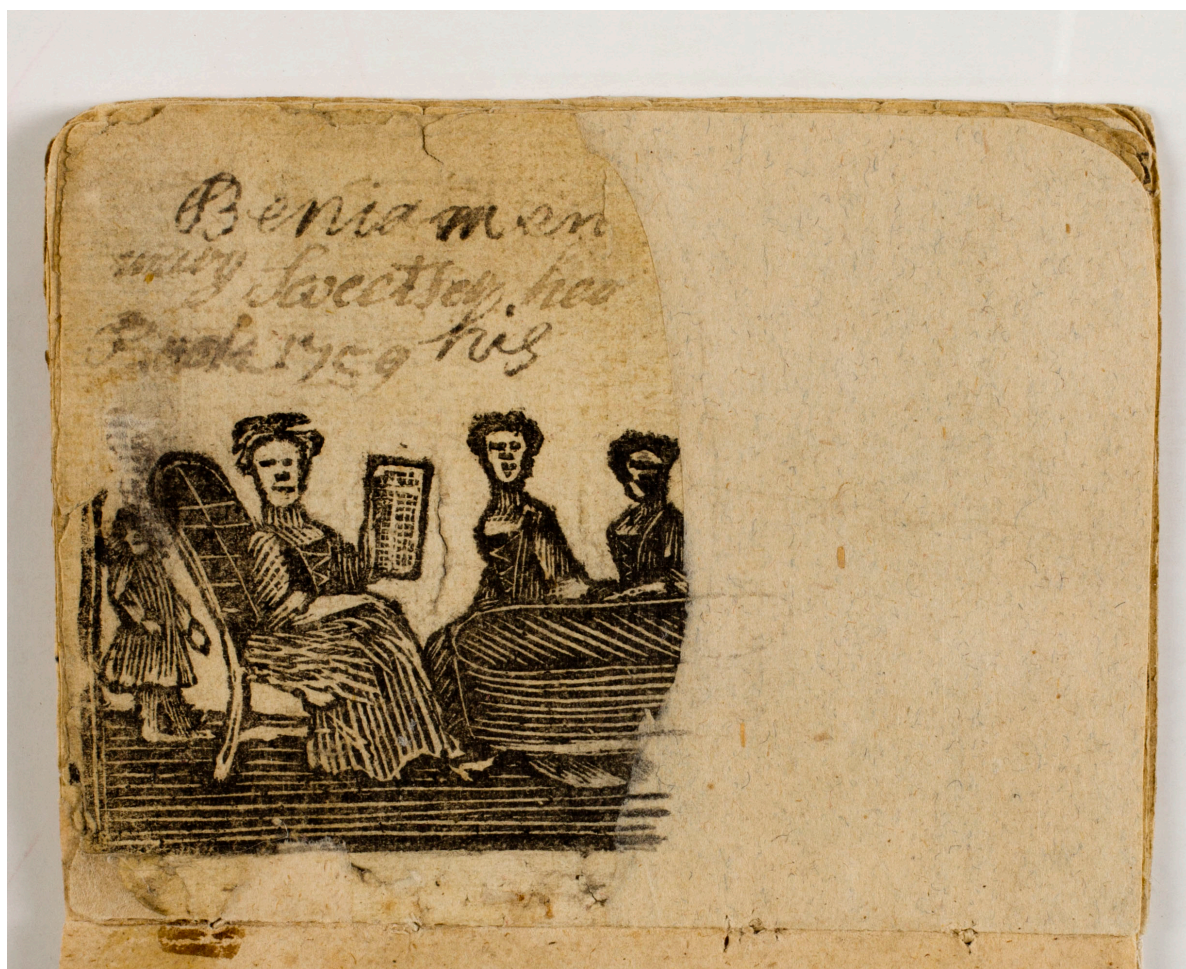 Beniamen
mary Sweetsey her
Book 1759 his